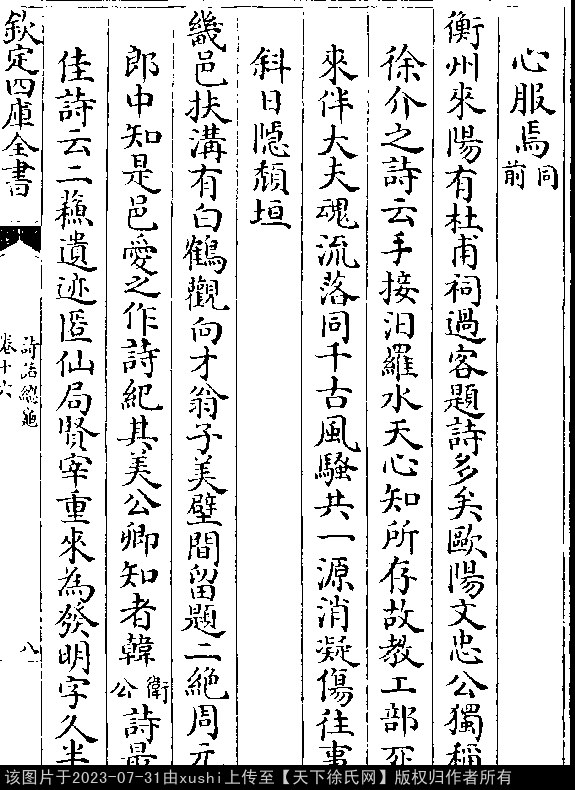 心服焉同前
衡州來陽有杜甫祠過客題詩多矣歐陽文忠公獨稱
徐介之詩云手接汨羅水天心知所存故教工部死
來伴大夫魂流落同千古風騷共一源消凝傷往事
斜日隱頹垣
畿邑扶溝有白鶴觀向才翁子美壁間留題二絶周元
郎中知是邑愛之作詩紀其美公卿知者韓衛公詩最
佳詩云二蘓遺迹匿仙局賢宰重來為發明字久半
欽定四庫全書
詩話總龜
卷十六
八
该图片于2023-07-31由xushi上传至【天下徐氏网】版权归作者所有